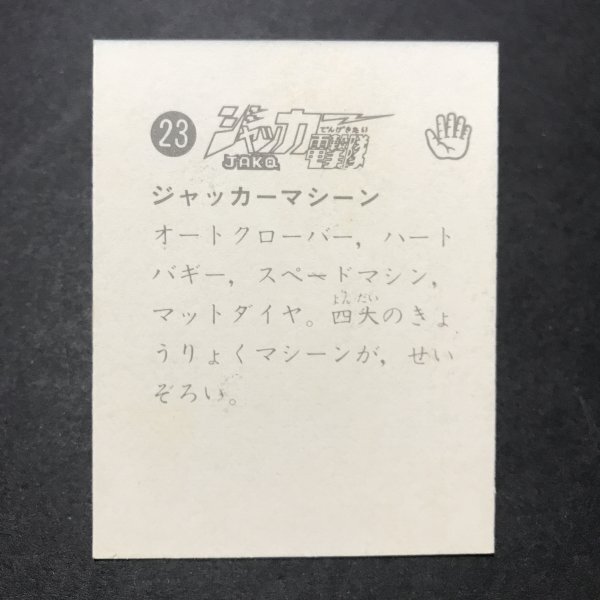 23
ジャッカー
でんげきたい
電撃隊
JAKQ
ジャッカーマシーン
オートクローバー，ハート
バギー，スペードマシン，
マットダイヤ。四大のきょ
よんだい
うりょくマシーンが，せい
ぞろい。